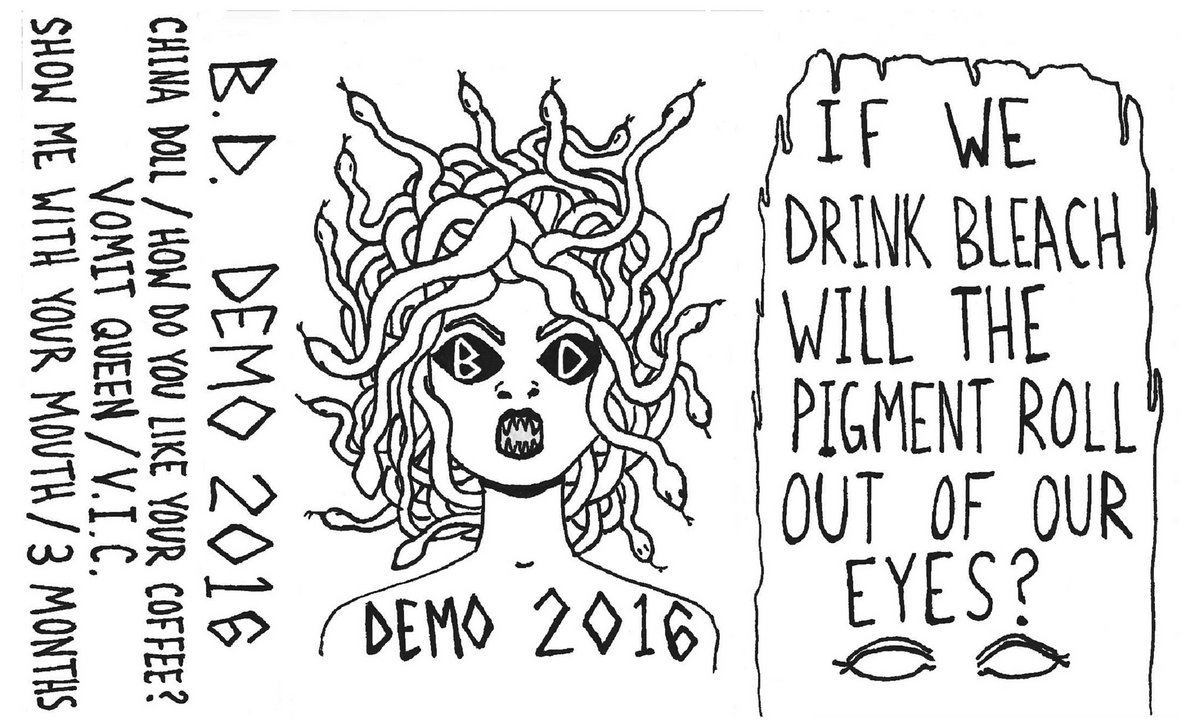 B.D. DEMO 2016
CHINA DOLL / HOW DO YOU LIKE YOUR COFFEE?
VOMIT QUEEN / V.I.C.
SHOW ME WITH YOUR MOUTH / 3 MONTHS
B D
DEMO 2016
IF WE
DRINK BLEACH
WILL THE
PIGMENT ROLL
OUT OF OUR
EYES?